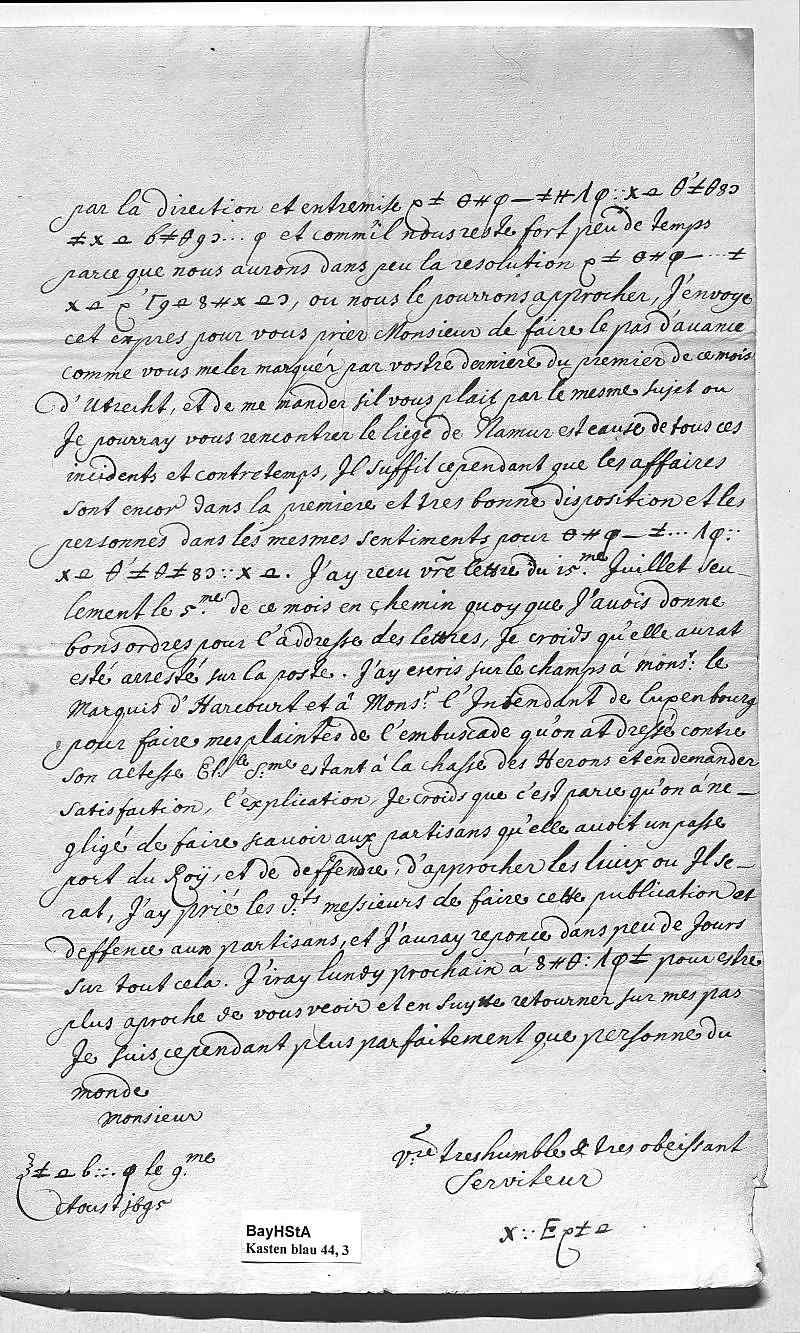 par la direction et entremise ƿ± θ#φ—±#Λφ::x⌓ θ'±θ8ɔ
±x⌓ b±θ9ɔ...φ et comm'il nous reste fort peu de temps
parce que nous aurons dans peu la resolution ƿ± θ#φ—...±
x⌓ ƿ'Γ9⌓8#x⌓ɔ, ou nous le pourrons approcher, J'envoye
cet expres pour vous prier Monsieur de faire le pas d'avance
comme vous me ler marquér par vostre derniere du premier de ce mois
d'Utrecht, et de me mander sil vous plait par le mesme sujet ou
Je pourray vous rencontrer le siege de Namur est cause de tous ces
incidents et contretemps, Il suffit cependant que les affaires
sont encor dans la premiere et tres bonne disposition et les
personnes dans les mesmes sentiments pour θ#φ—±...Λφ::
x⌓ θ'±θ±8ɔ::x⌓. J'ay receu vre lettre du 15.me Juillet seu-
lement le 5.me de ce mois en chemin quoy que J'avois donne
bons ordres pour l'addresse des lettres, Je croids qu'elle aurat
esté arresté sur la poste. J'ay escris sur le champs á monsr. le
Marquis d'Harcourt et á Monsr. l'Intendant de Luxenbourg
pour faire mes plaintes de l'embuscade qu'on at dressé contre
son altesse El.le S.me estant á la chasse des Herons et en demander
satisfaction, l'explication, Je croids que c'est parce qu'on á ne-
gligé de faire scavoir aux partisans qu'elle avoit un passe
port du Roÿ, et de deffendre, d'approcher les luix ou Il se-
rat, J'ay prié les d.ts messieurs de faire cette publication et
deffence aux partisans, et J'auray reponce dans peu de Jours
sur tout cela. J'iray lundy prochain á 8#θ:Λφ± pour estre
plus aproche de vous veoir et en suytte retourner sur mes pas
Je suis cependant plus parfaitement que personne du
monde
Monsieur
vre tres humble & tres obeissant
Serviteur
±⌓b:::φ le 9.me
Aoust 1695
x::Eƿ±⌓
BayHStA
Kasten blau 44, 3